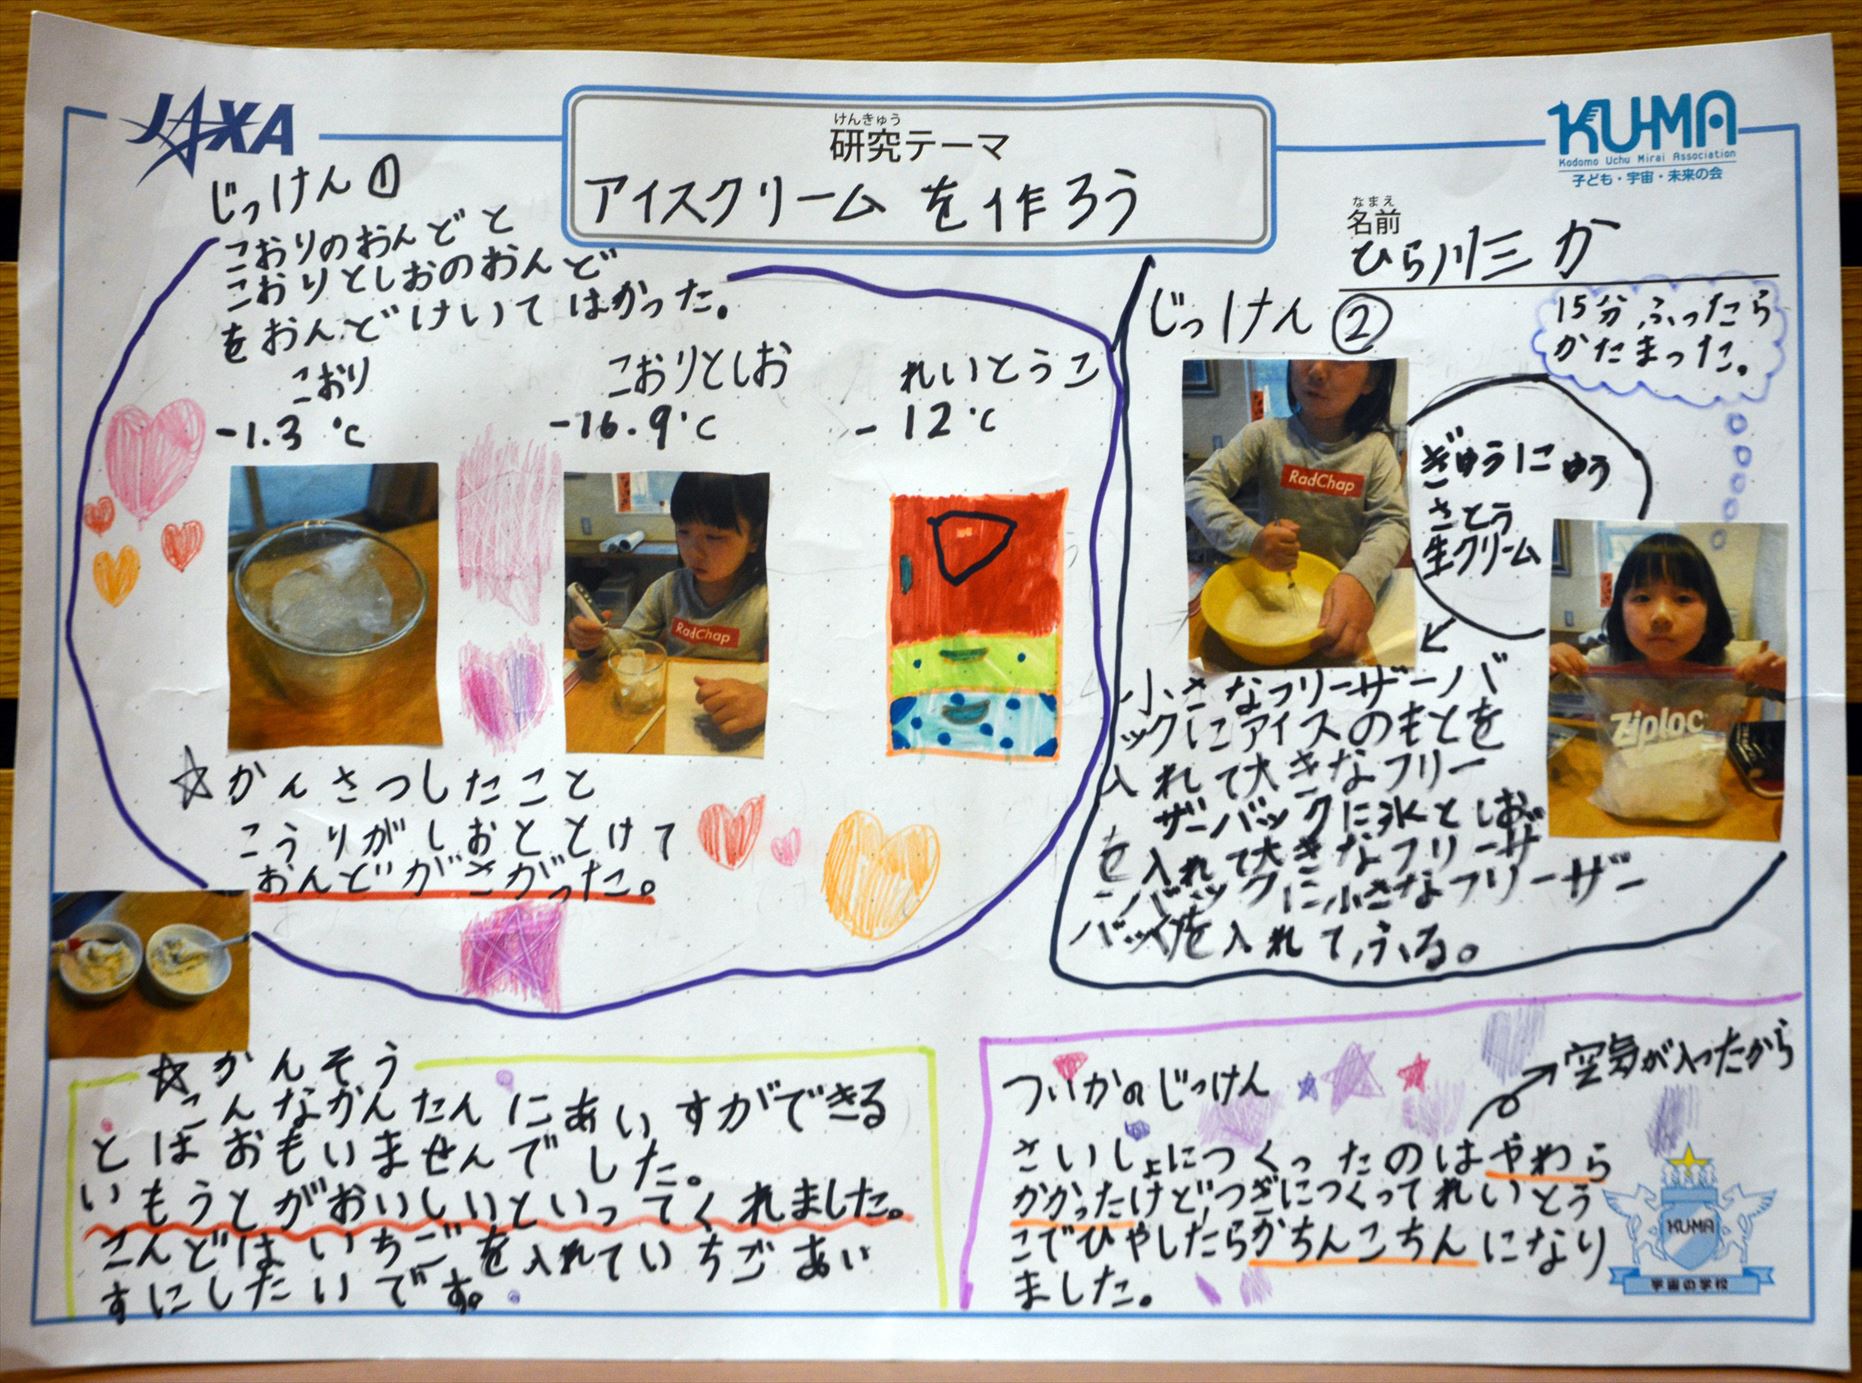 JAXA
けんきゅう
研究テーマ
アイスクリームを作ろう
KU-MA
Kodomo Uchu Mirai Association
子ども・宇宙・未来の会
なまえ
名前
ひら川三か
じっけん①
こおりのおんどと
こおりとしおのおんど
をおんどけいてはかった。
こおり
-1.3℃
こおりとしお
-16.9℃
れいとうこ
-12℃
RadChap
☆かんさつしたこと
こうりがしおととけて
おんどがさがった。
じっけん②
15分ふったら
かたまった。
RadChap
ぎゅうにゅう
さとう
生クリーム
Ziploc
小さなフリーザーバ
ックにアイスのもとを
入れて大きなフリー
ザーバックに氷としお
を入れて大きなフリーザ
ーバックに小さなフリーザー
バックを入れて,ふる。
☆かんそう
こんなかんたんにあいすができる
とはおもいませんでした。
いもうとがおいしいといってくれました。
こんどはいちごを入れていちごあい
すにしたいです。
ついかのじっけん
空気が入ったから
さいしょにつくったのはやわら
かかったけど,つぎにつくってれいとう
こでひやしたらかちんこちんになり
ました。
KUMA
宇宙の学校